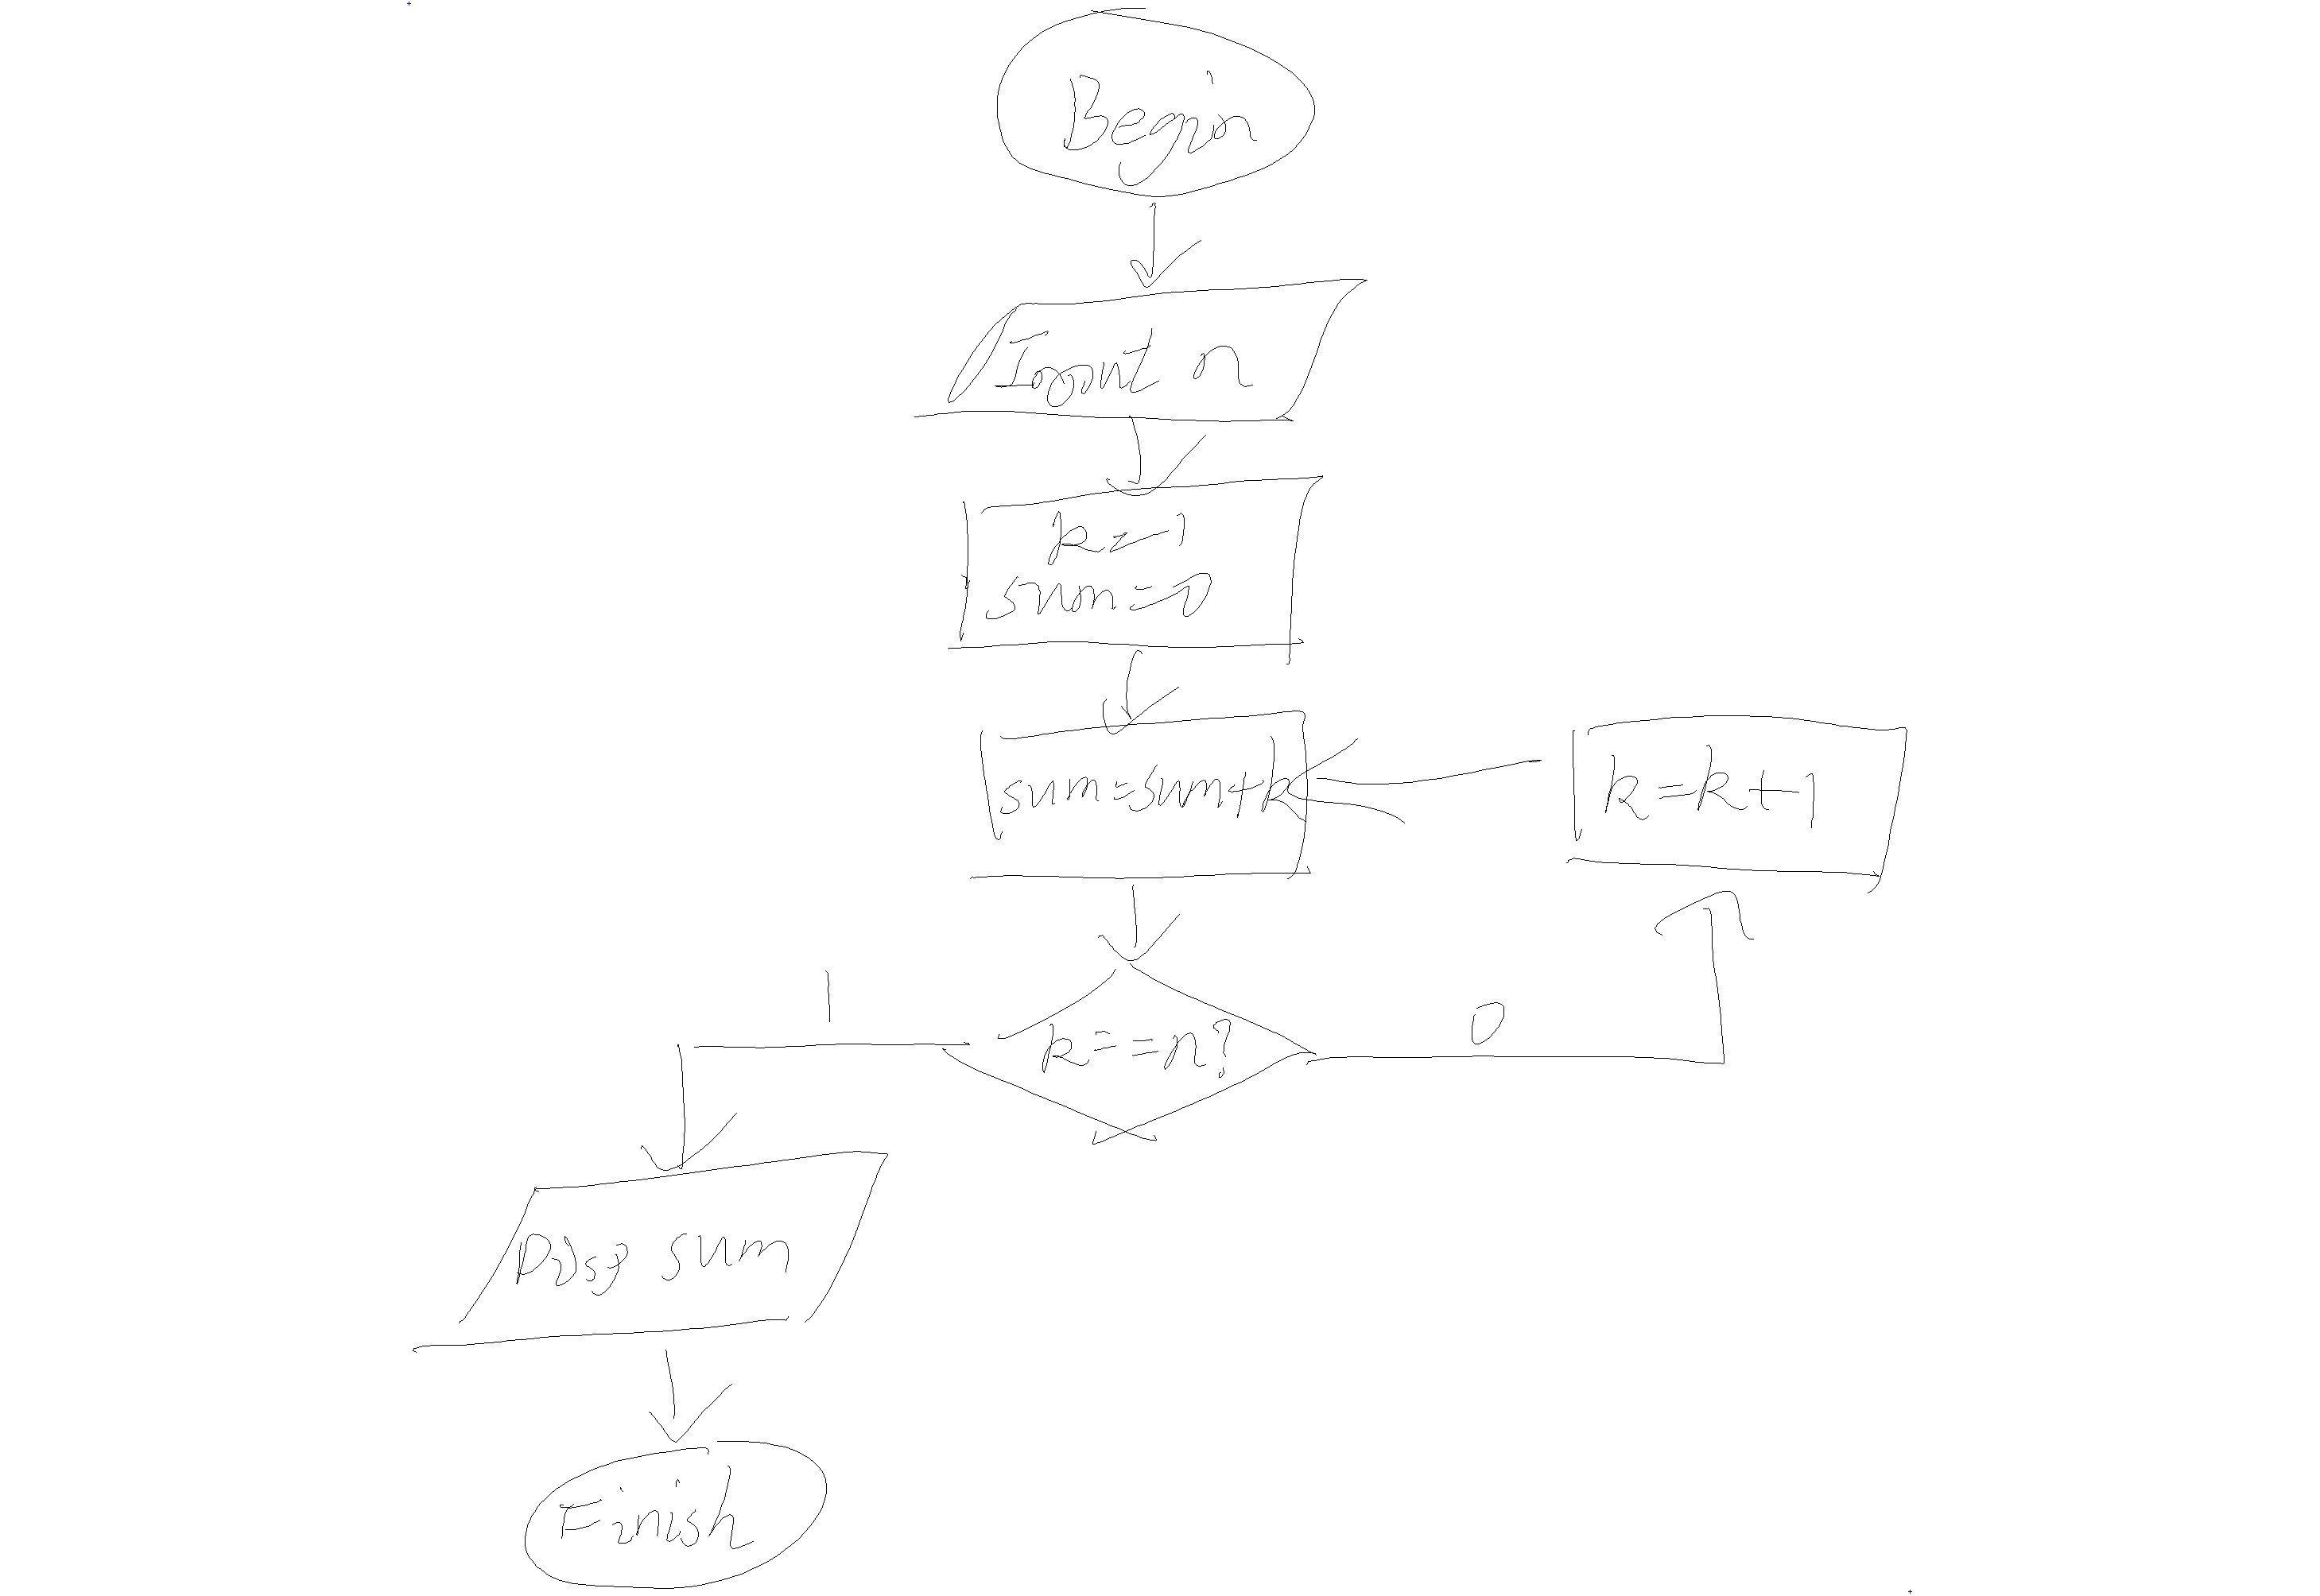 Begin
Input n
k=1
sum=0
sum=sum+k
k=k+1
k==n?
1
0
Disp sum
Finish